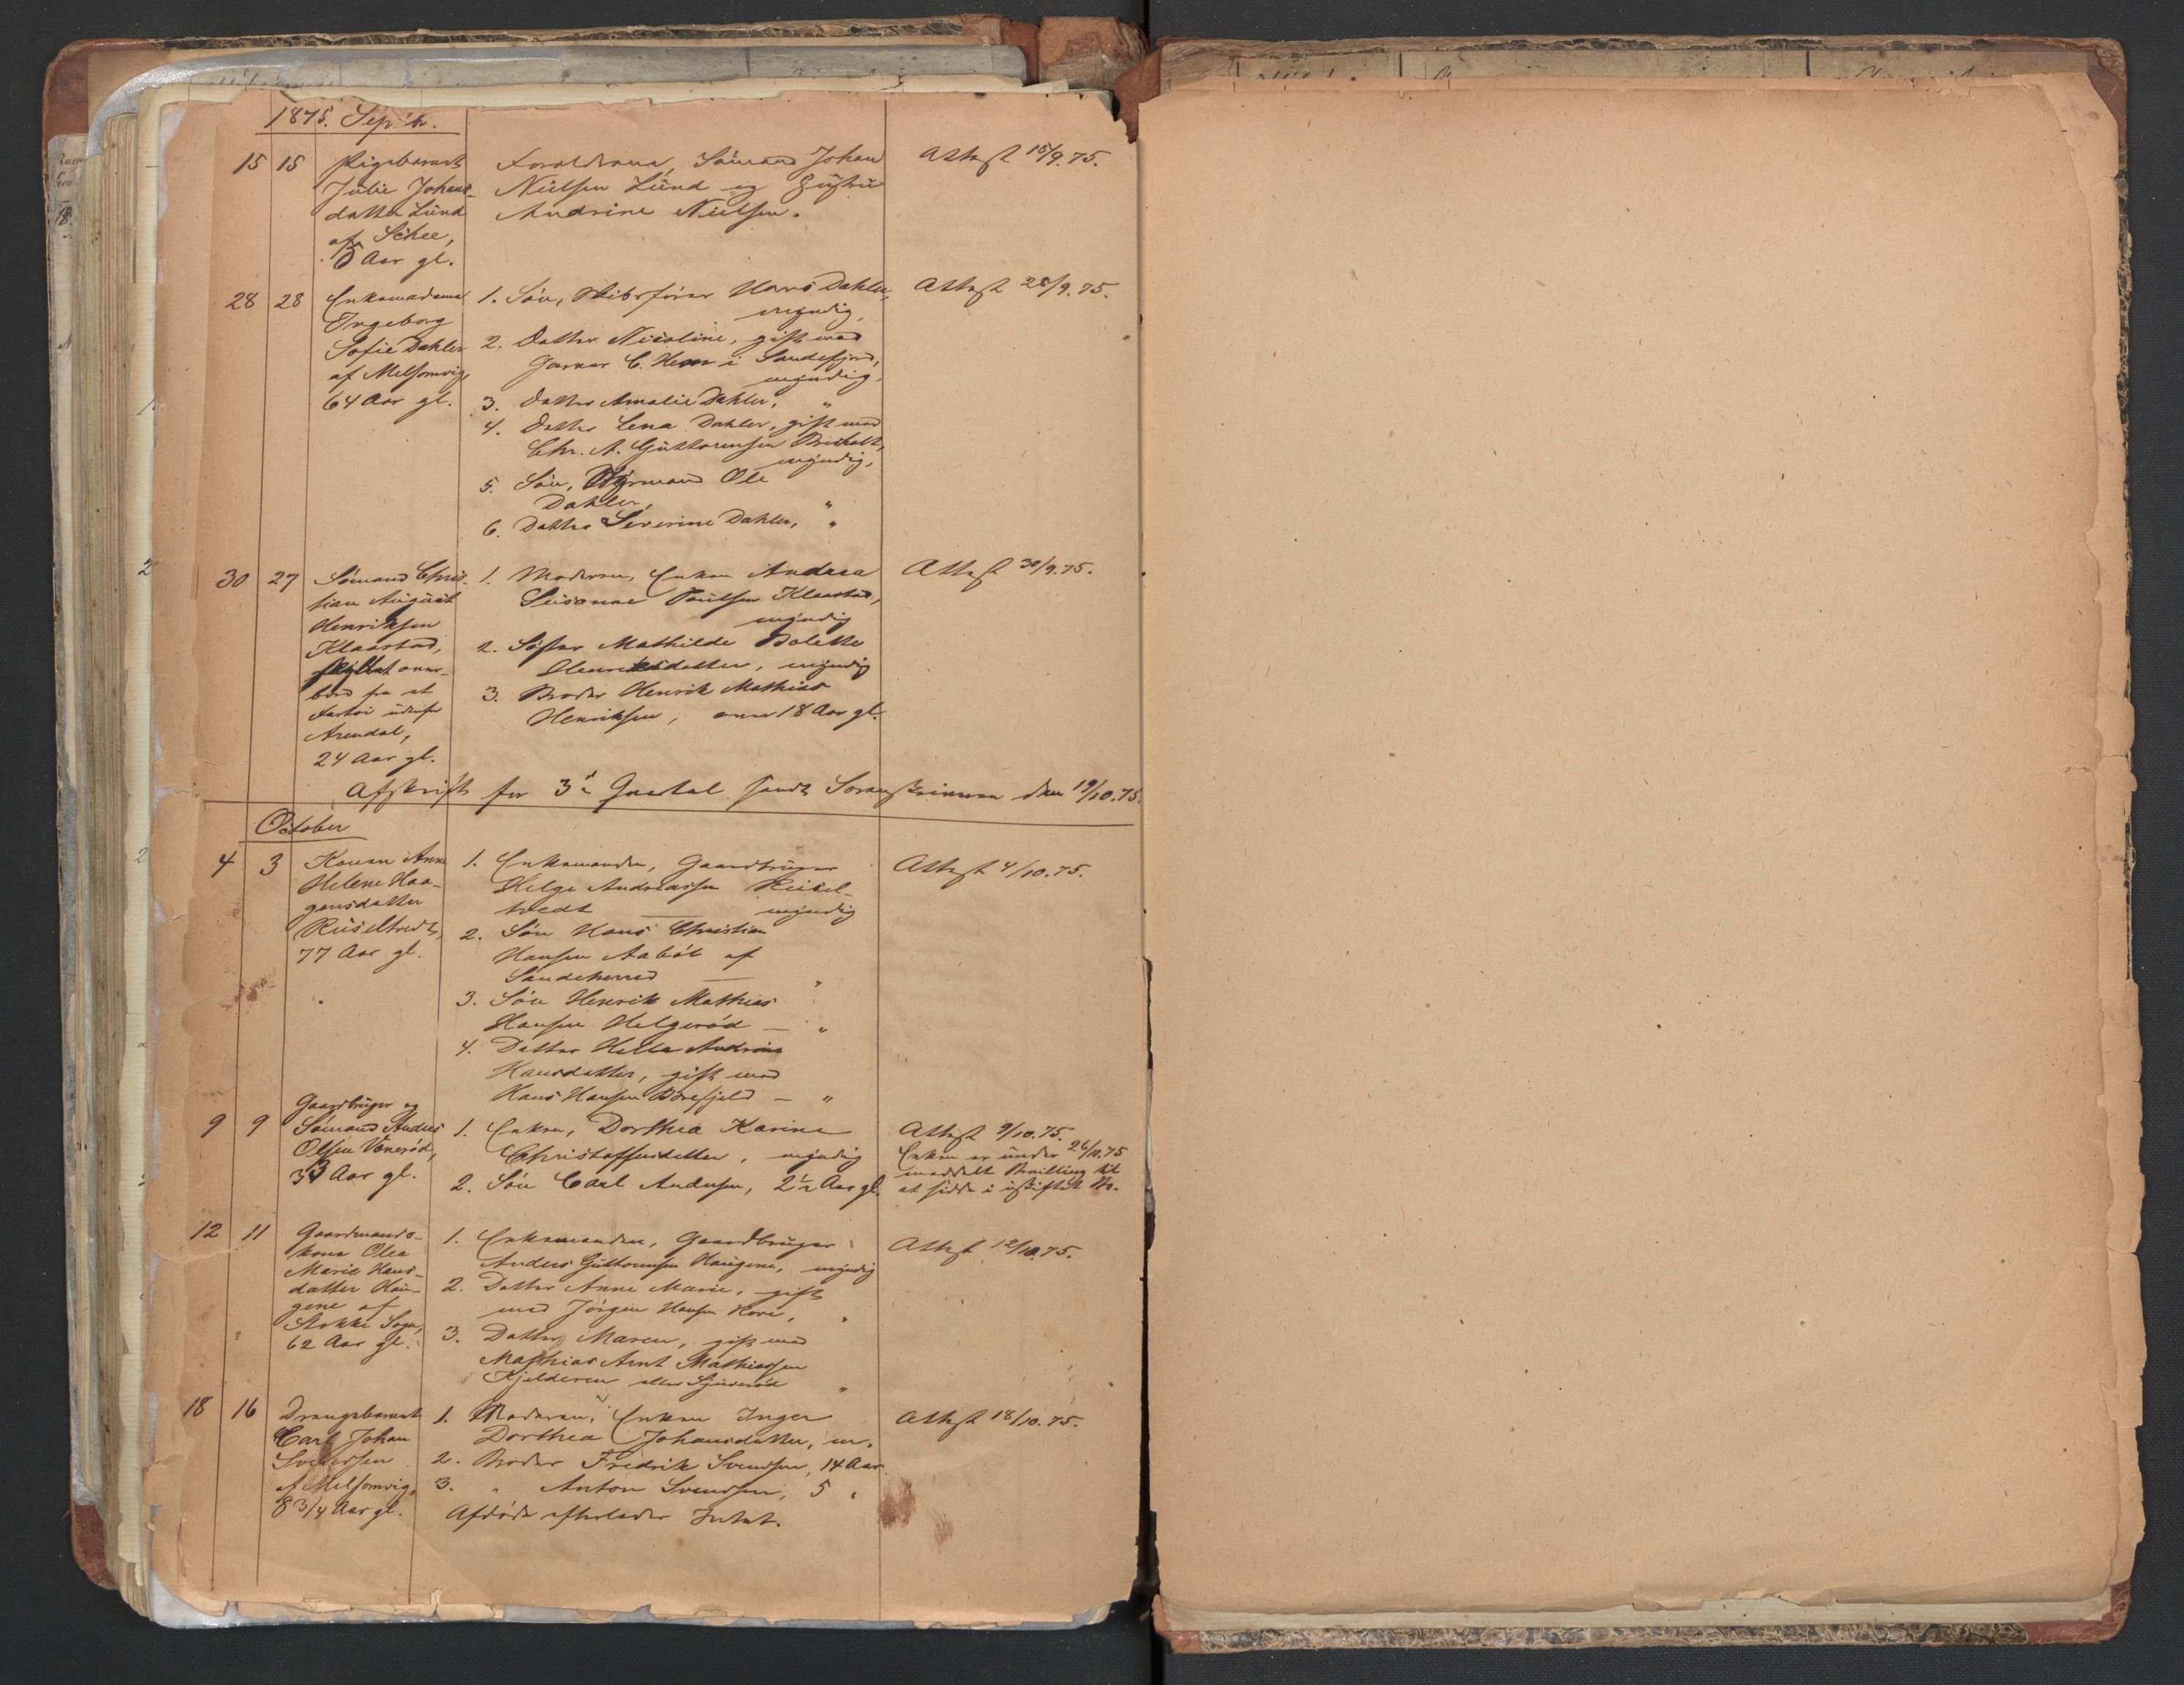 1875. Sept'br.
15 15 Pigebarnet Julie Johans-
datter Lund
af Schee,
5 Aar gl.
Forældrene, Sømand Johan
Nielsen Lund og Hustru
Andrine Nielsen.
Attest 15/9.75.
28 28 Enkemadame
Ingeborg
Sofie Dahler
af Melsomvig
64 Aar gl.
1. Søn, Skibsfører Hans Dahler,
myndig,
2. Datter Nicoline, gift med
Garver C. Hem i Sandefjord,
myndig,
3. Datter Amalie Dahler, "
4. Datter Lena Dahler, gift med
Chr. A. Guttormsen Bruholt,
myndig,
5. Søn, Styrmand Ole
Dahler, "
6. Datter Severine Dahler, "
Attest 28/9.75.
30 27 Sømand Chris-
tian August
Henriksen
Klaastad,
skyllet over-
bord fra et
Fartøi udenfor
Arendal,
24 Aar gl.
1. Moderen, Enken Andrea
Susanne Poulsen Klaastad,
myndig
2. Søster Mathilde Bolette
Henriksdatter, myndig
3. Broder Henrik Mathias
Henriksen, over 18 Aar gl.
Attest 30/9.75.
Afskrift for 3d Qvartal sendt Sorenskriveren den 19/10.75.
October
4 3 Konen Anne
Helene Haa-
gensdatter
Ruseltvedt,
77 Aar gl.
1. Enkemanden, Gaardbruger
Helge Andreassen Rusel-
tvedt — myndig
2. Søn Hans Christian
Hansen Aabøl af
Sandeherred — "
3. Søn Henrik Mathias
Hansen Helgerød — "
4. Datter Helle Andrine
Hansdatter, gift med
Hans Hansen Borefjeld — "
Attest 4/10.75.
9 9 Gaardbruger og
Sømand Anders
Olsen Vennerød,
33 Aar gl.
1. Enken, Dorthea Karine
Christoffersdatter, myndig
2. Søn Carl Andersen, 2½ Aar gl.
Attest 9/10.75.
Enken er under 26/10.75
meddelt Bevilling til
at sidde i uskiftet Bo.
12 11 Gaardmands-
kone Olea
Marie Hans-
datter Hau-
gene af
Stokke Sogn,
62 Aar gl.
1. Enkemanden, Gaardbruger
Anders Guttormsen Haugene, myndig
2. Datter Anne Marie, gift
med Jørgen Hansen Hove, "
3. Datter Maren, gift med
Mathias Arnt Mathiassen
Kjelderen eller "
Attest 12/10.75.
18 16 Drengebarnet
Carl Johan
Svendsen
af Melsomvig,
8 3/4 Aar gl.
1. Moderen, Enken Inger
Dorthea Johansdatter, m.
2. Broder Fredrik Svendsen, 14 Aar
3. " Anton Svendsen, 5 "
Afdøde efterlader Intet.
Attest 18/10.75.